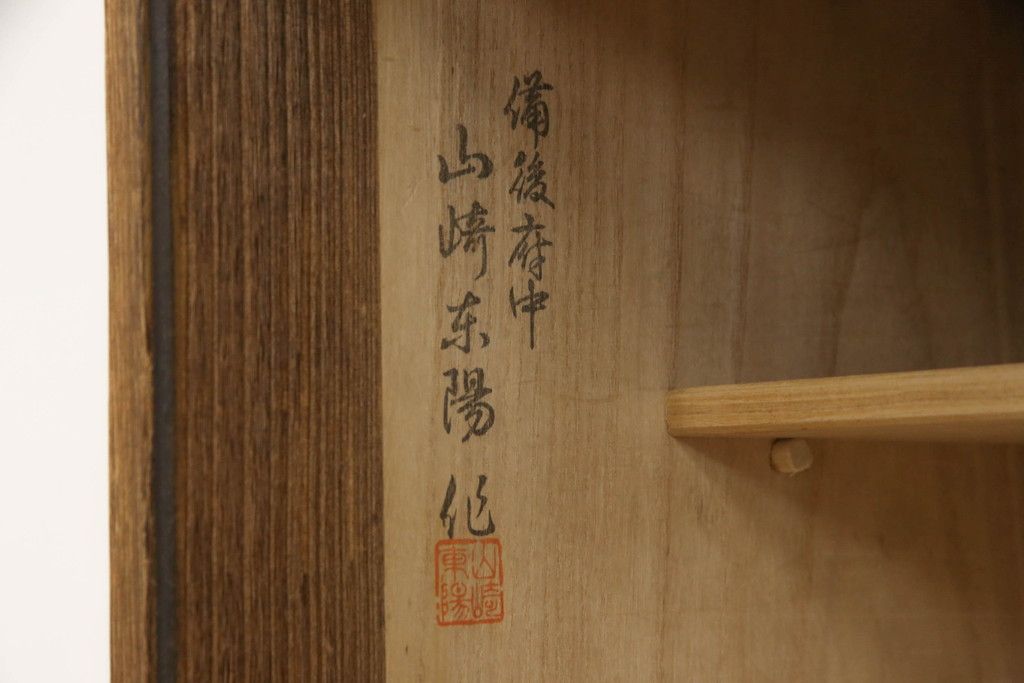 備後府中
山崎东陽作
山崎
東陽